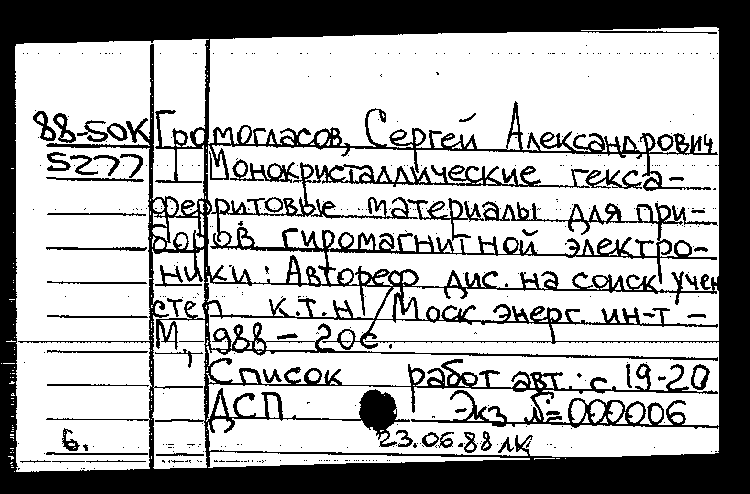 88-50К Громогласов, Сергей Александрович
5277 Монокристаллические гекса-
ферритовые материалы для при-
боров гиромагнитной электро-
ники : Автореф дис. на соиск учен
степ к.т.н / Моск. энерг. ин-т –
М., 1988. – 20с.
Список работ авт.: с. 19-20
ДСП. Экз. №=000006
6. 23.06.88 лк